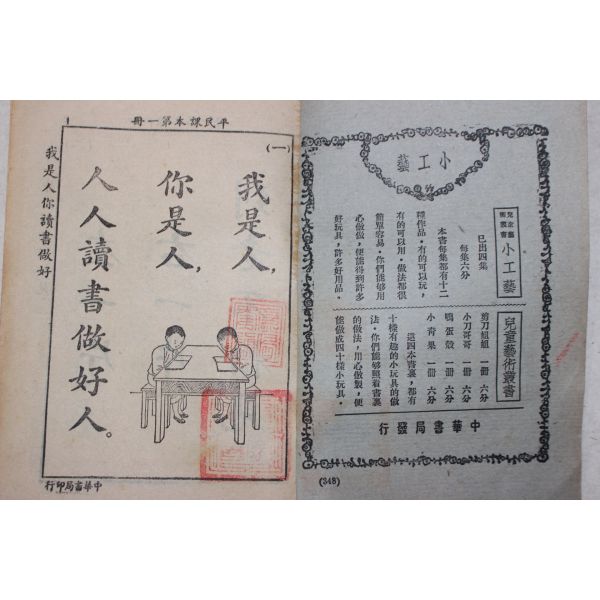 平民課本第一冊
1
(一)
我是人,
你是人,
人人讀書做好人。
我是人你讀書做好
中華書局印行
小工藝
兒童藝術叢書
小工藝
已出四集
每集六分
本書每集都有十二
種作品。有的可以玩,
有的可以用。做法都很
簡單容易。你們能够用
心做做,便能得到許多
好玩具,許多好用品。
兒童藝術叢書
剪刀姐姐 一冊 六分
小刀哥哥 一冊 六分
鴨蛋殼 一冊 六分
小青果 一冊 六分
這四本書裏,都有
十樣有趣的小玩具的做
法。你們能够照着書裏
的做法,用心做製,便
能做成四十樣小玩具。
中華書局發行
(348)